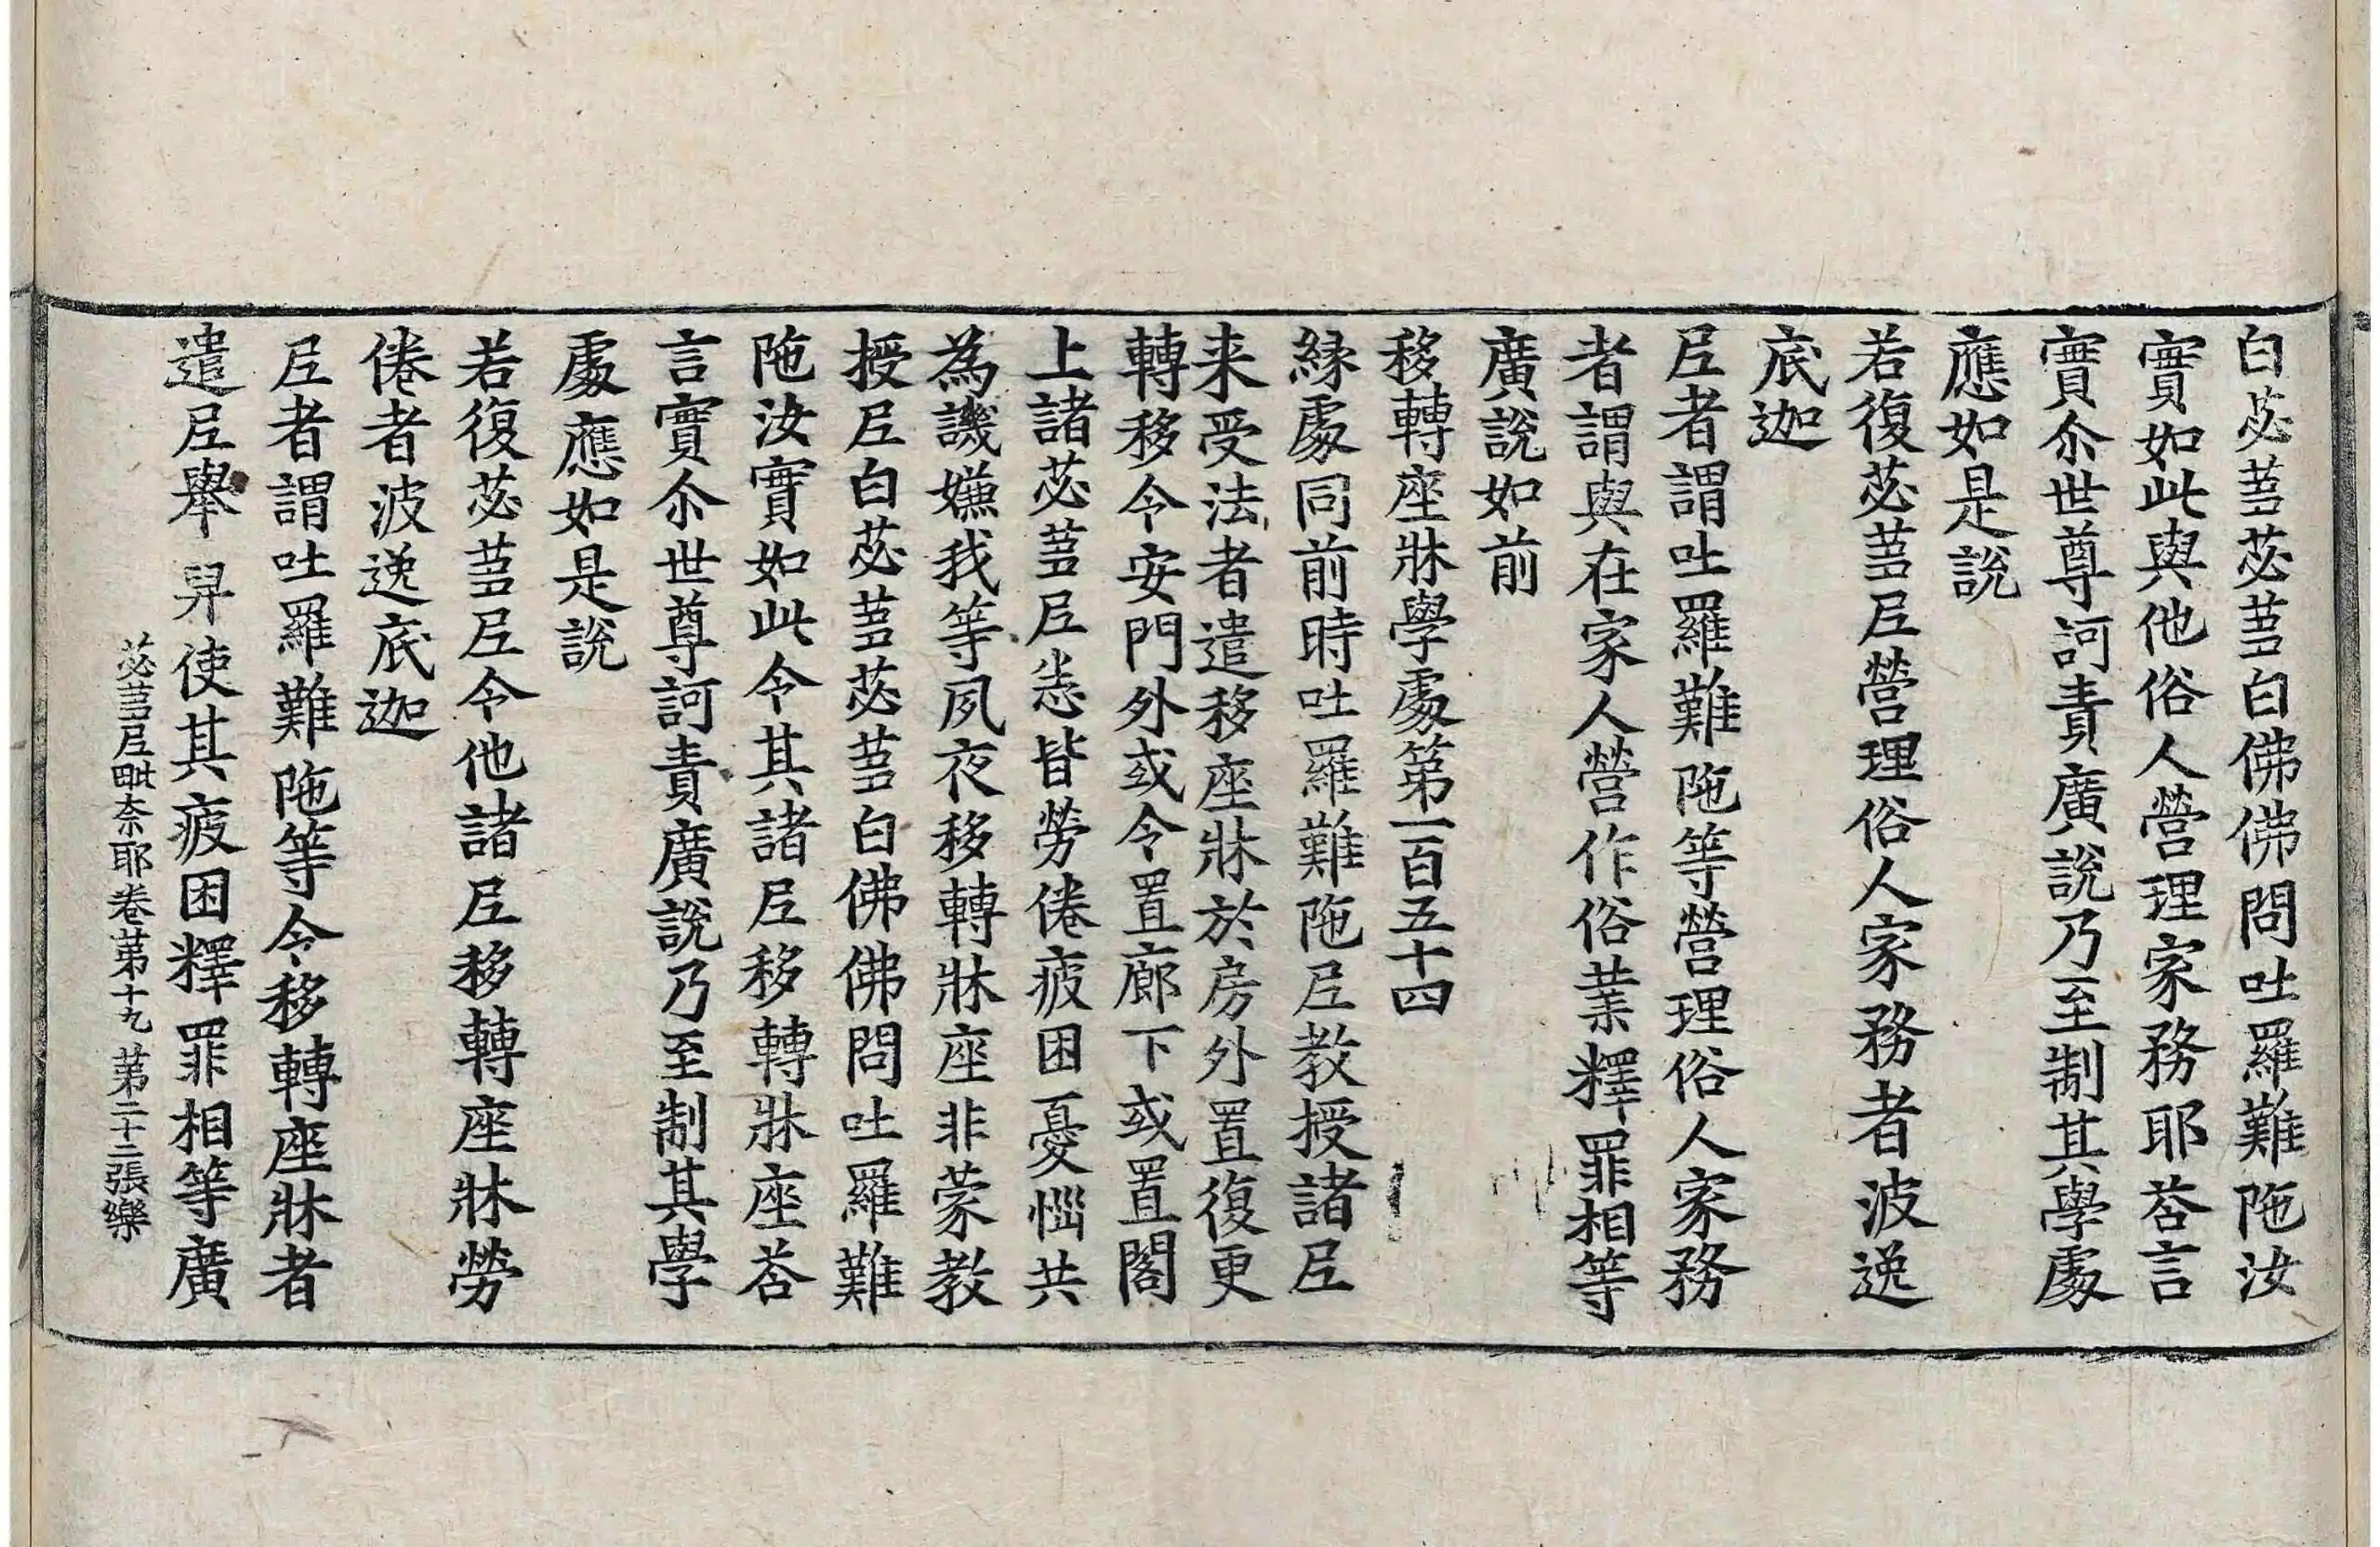 白苾蒭苾蒭白佛佛問吐羅難陁汝
實如此與他俗人營理家務耶荅言
實尒世尊訶責廣說乃至制其學處
應如是說
若復苾蒭尼營理俗人家務者波逸
底迦
尼者謂吐羅難陁等營理俗人家務
者謂與在家人營作俗業釋罪相等
廣說如前
移轉座牀學處第一百五十四
緣處同前時吐羅難陁尼教授諸尼
来受法者遣移座牀於房外置復更
轉移令安門外或令置廊下或置閣
上諸苾蒭尼恙皆勞倦疲困憂惱共
為譏嫌我等夙夜移轉牀座非蒙教
授尼白苾蒭苾蒭白佛佛問吐羅難
陁汝實如此令其諸尼移轉牀座荅
言實尒世尊訶責廣說乃至制其學
處應如是說
若復苾蒭尼令他諸尼移轉座牀勞
倦者波逸底迦
尼者謂吐羅難陁等令移轉座牀者
遣尼舉舁使其疲困釋罪相等廣
苾蒭尼毗奈耶卷第十九 第二十二張樂